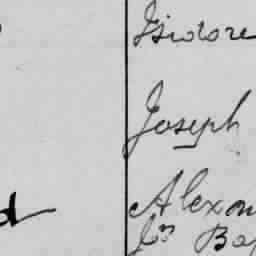 Isidore
Joseph
Alexan
Jn Bap